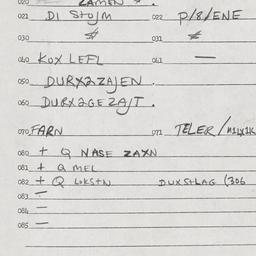 020 ZAMEN
021 DI StoJM 022 P/8/ENE
030 # 031 ≠
040 KOX LEFL 041 —
050 DURX2ZAJEN.
060 DURX2GEZAJT.
070 FARN 071 TELER/
080 + Q NASE ZAXN
081 + Q MEL
082 + Q LOKStN DUXStLAG (306
083 —
084 —
085 —